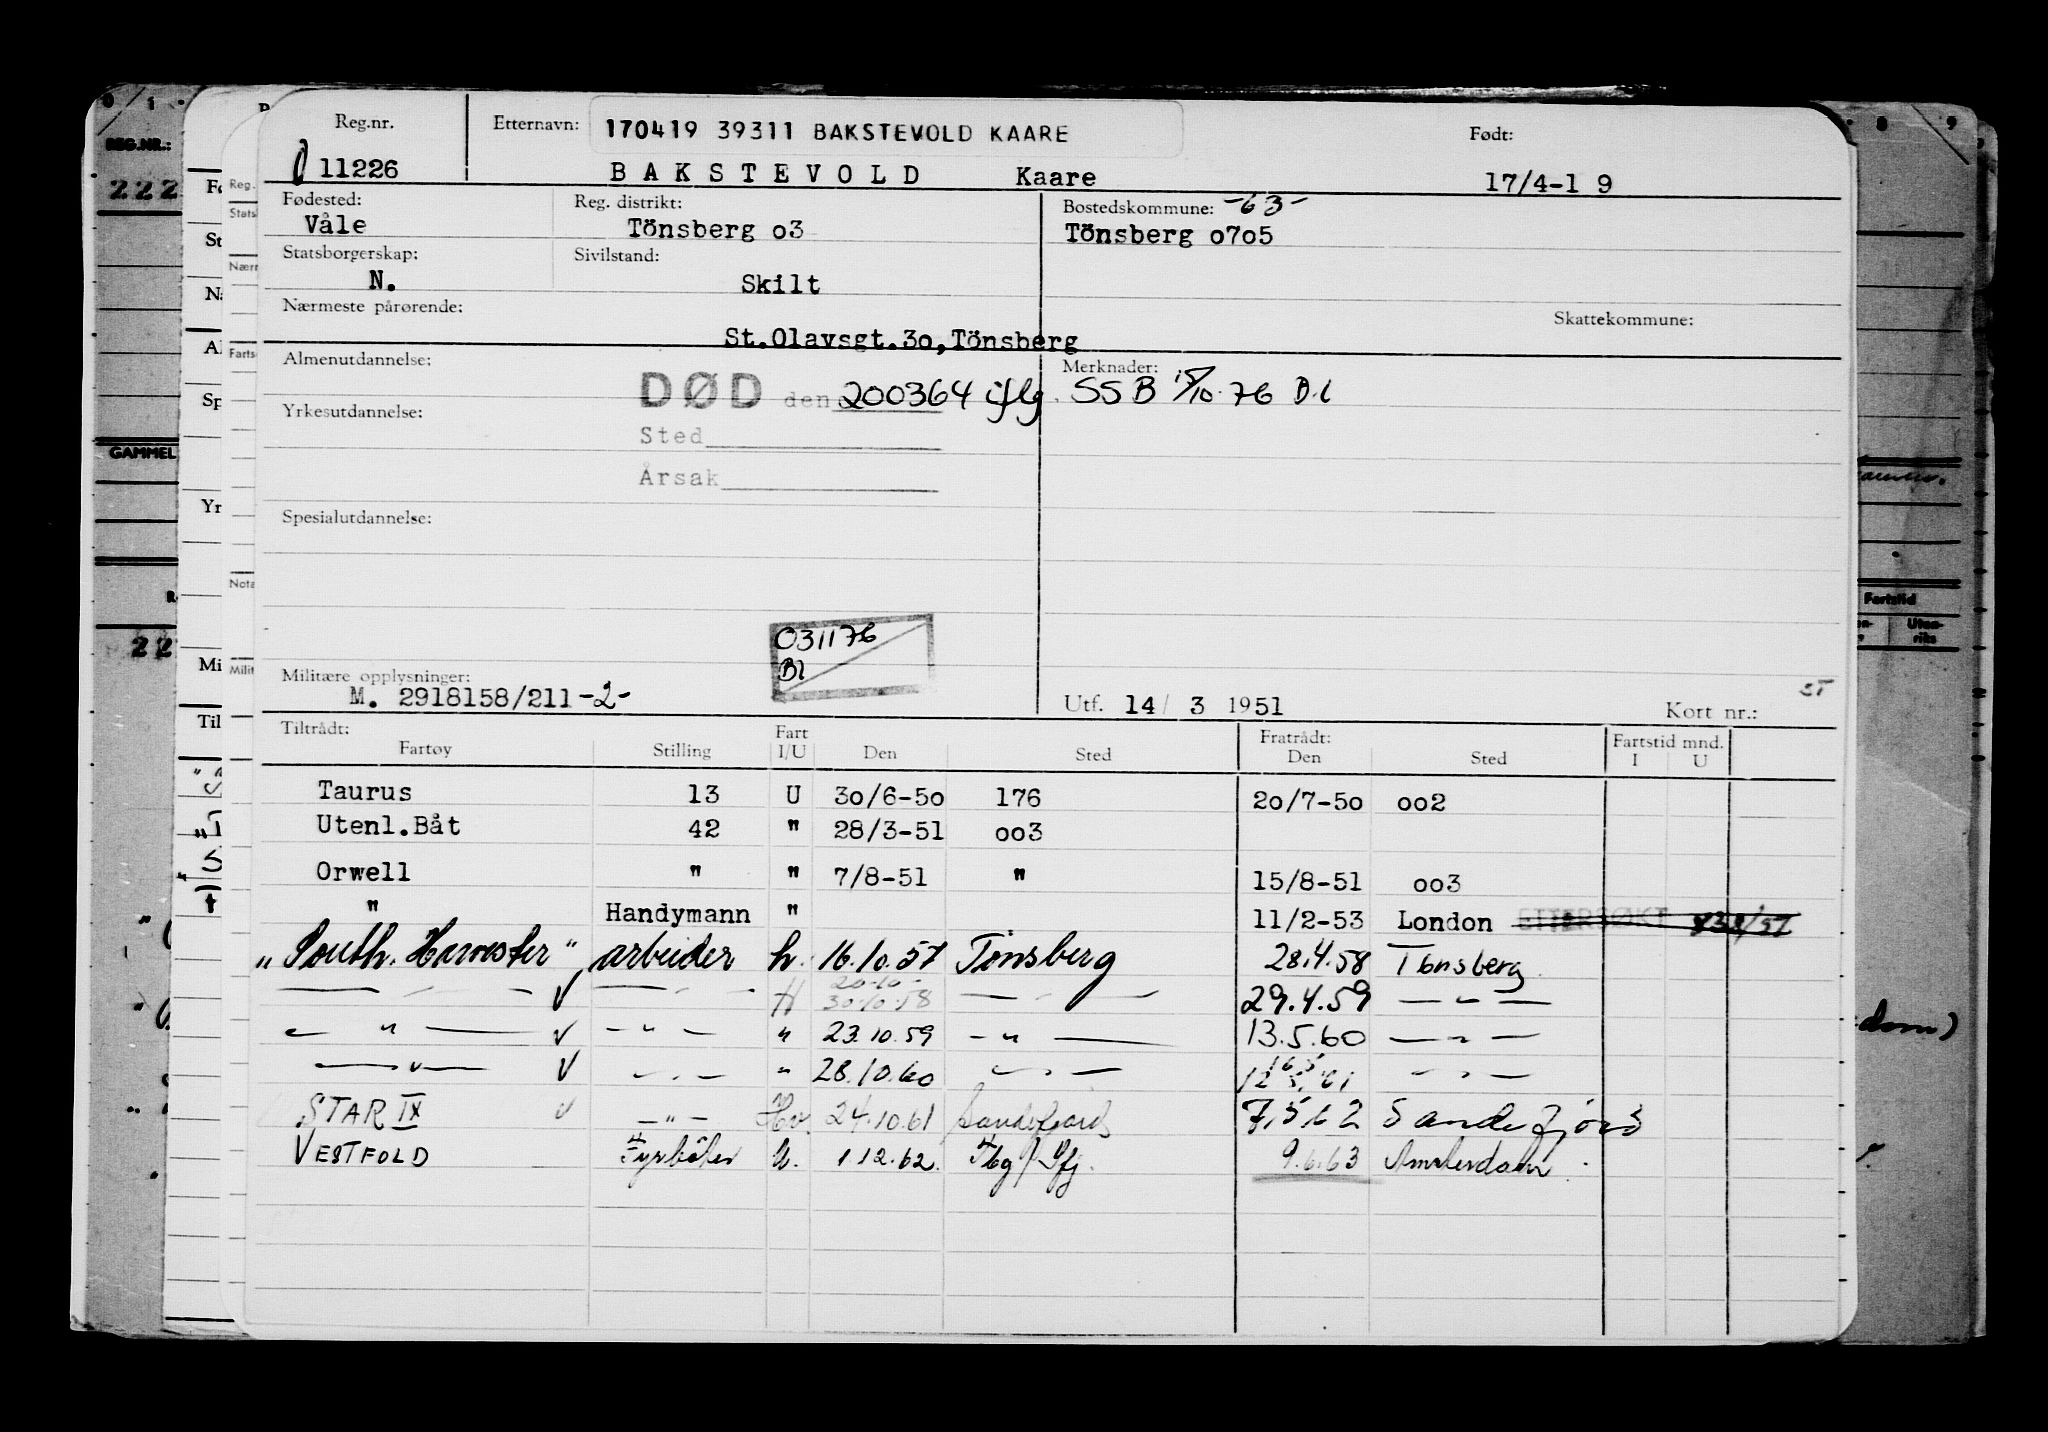 Reg.nr. Etternavn: 170419 39311 BAKSTEVOLD KAARE Født:
11226 BAKSTEVOLD Kaare 17/4-1 9
Fødested: Reg. distrikt: Bostedskommune: -63-
Våle Tönsberg o3 Tönsberg o7o5
Statsborgerskap: Sivilstand:
N. Skilt
Nærmeste pårørende: Skattekommune:
St.Olavsgt.3o,Tönsberg
Almenutdannelse: Merknader:
DØD den 200364 iflg. SSB 15/10-76 Bl
Yrkesutdannelse:
Sted
Årsak
Spesialutdannelse:
031176
Bl
Militære opplysninger:
M. 2918158/211-2- Utf. 14/ 3 1951 Kort nr.:
Tiltrådt: Fart Fratrådt: Fartstid mnd.
Fartøy Stilling I/U Den Sted Den Sted I U
Taurus 13 U 3o/6-5o 176 2o/7-5o oo2
Utenl.Båt 42 " 28/3-51 oo3
Orwell " " 7/8-51 " 15/8-51 oo3
" Handymann " 11/2-53 London ETTERSØKT
"South. Harvester" arbeider h. 16.10.57 Tønsberg 28.4.58 Tønsberg
— " — — " — H 30.10.58 — " — 29.4.59 — " —
— " — — " — " 23.10.59 — " — 13.5.60 — " —
— " — — " — " 28.10.60 — " — — " —
STAR IX — " — Hv. 24.10.61 Sandefjord 7.5.62 Sandefjord
VESTFOLD Fyrbøter U. 1.12.62. Tbg/Sfj. 9.6.63 Amsterdam
REG.NR.:
222
GAMMEL
Fartstid
Uten-
riks